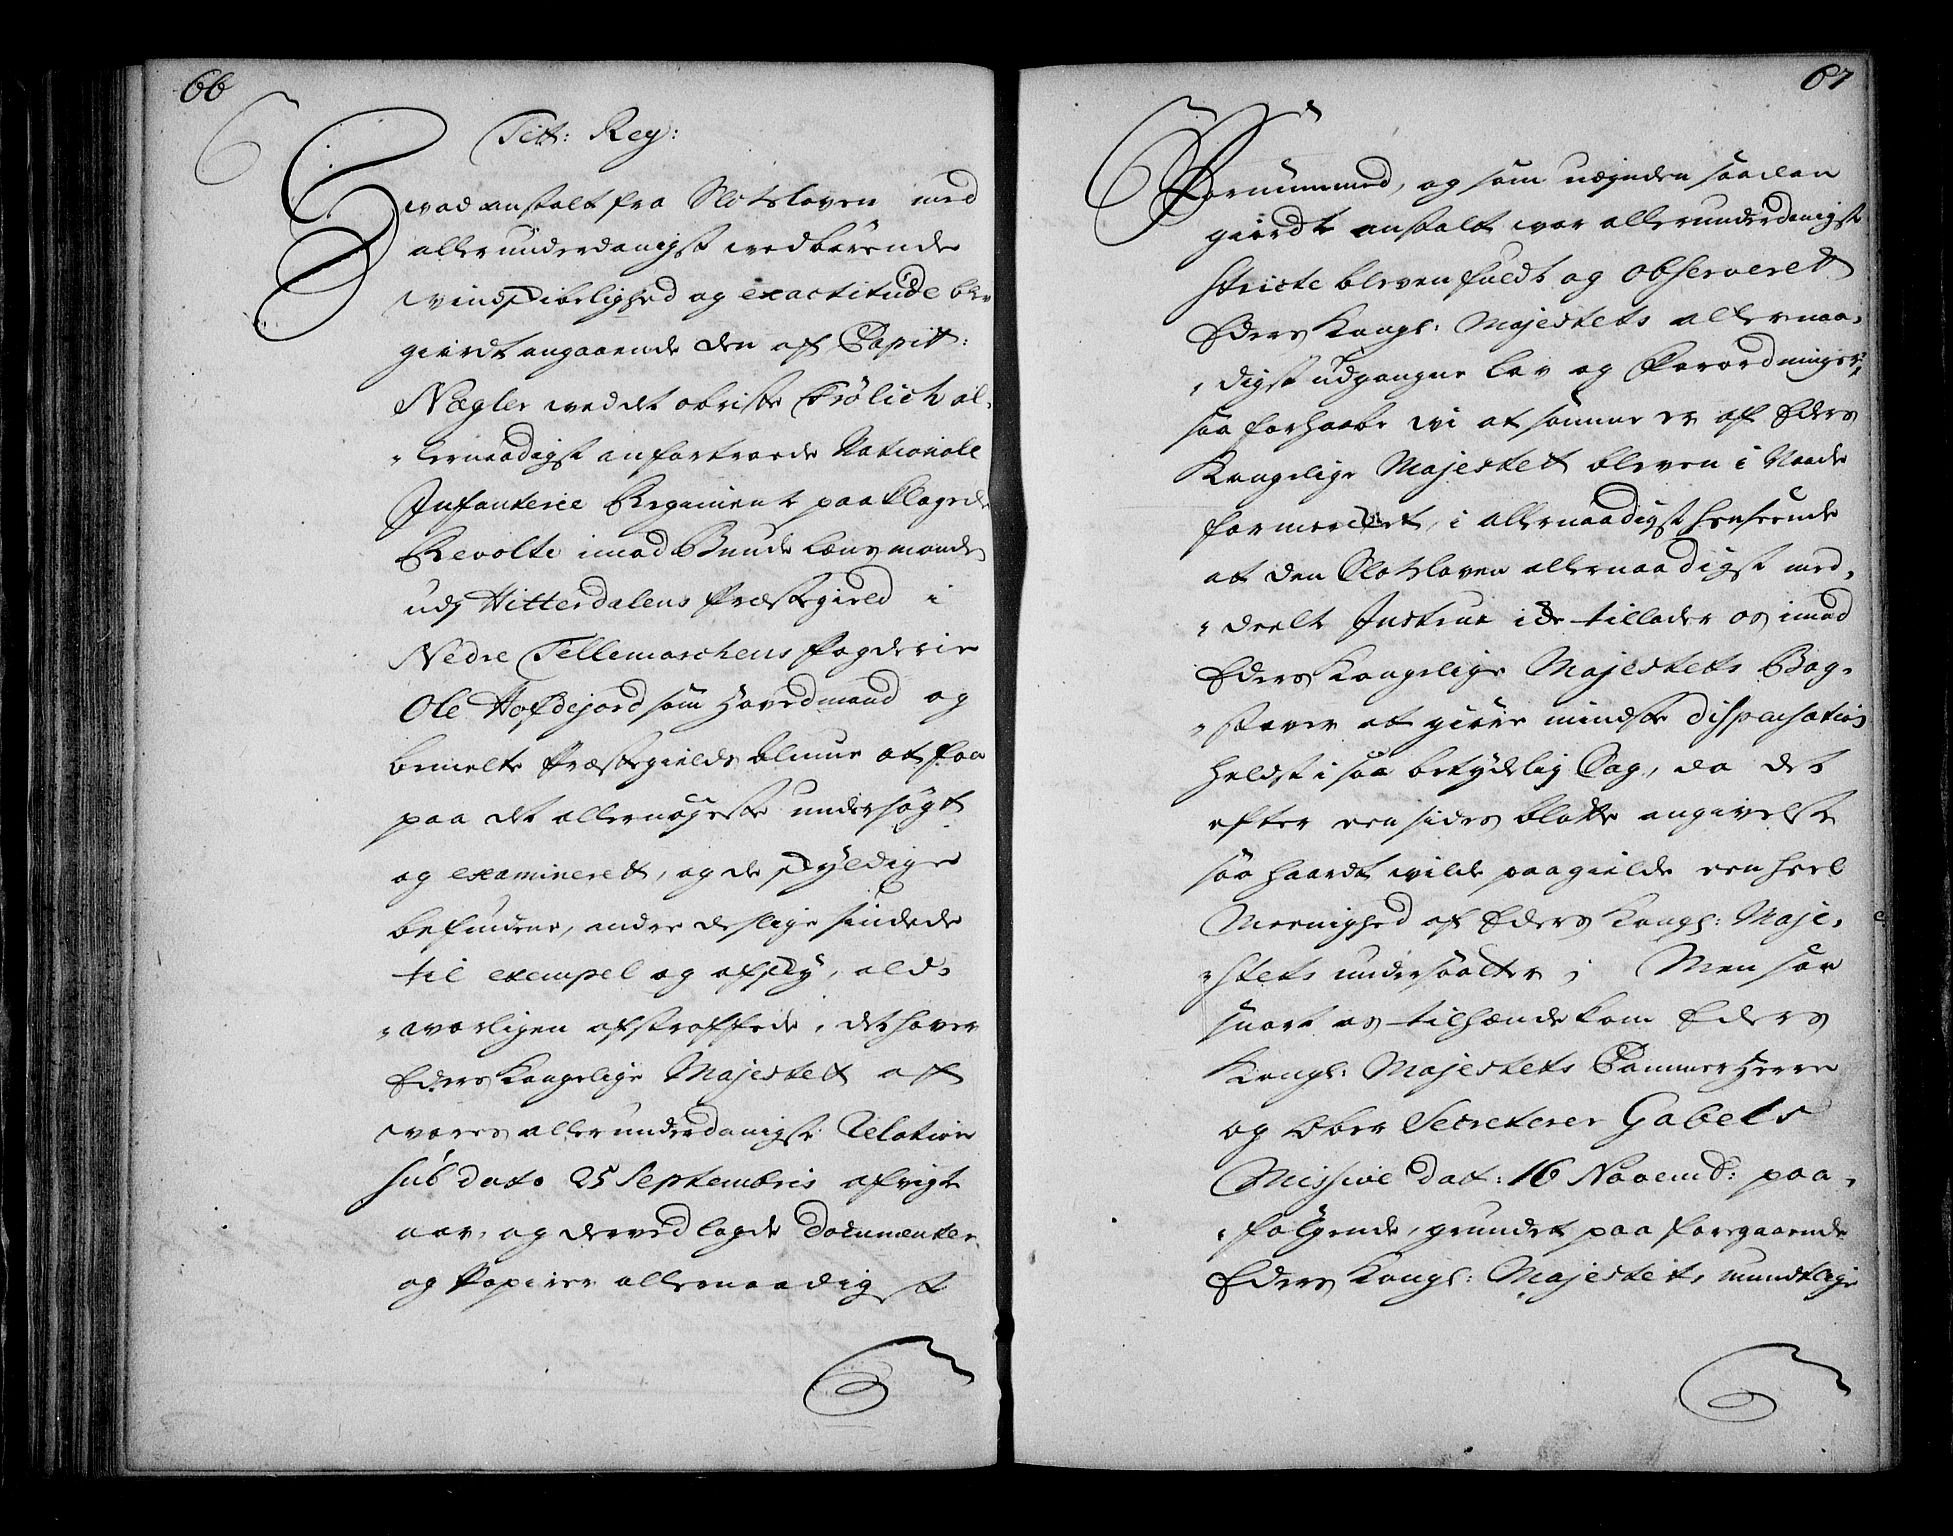 66
Titt: Reg:
Hvad anstalt fra Slotsloven med
allerunderdanigst vedbørende
vindskibelighed og exactitude blev
giordt angaaende den af Capit:
Nægler ved det obriste Frölich al-
lernaadigst anfortroede Nationale
Infanterie Regiment paaklagede
Revolte imod Bunde lænsmande
udj Hitterdalens Præstegield i
Nedre Tellemarchens fogderie
Ole Hofdejord som Hovedmand og
bemelte Præstegields almue at faa
paa det allernøyeste undersøgt
og examineret, og de skyldige
befundne, andre deslige sindede
til exempel og afsky, ald-
vorligen afstraffede, det haver
Eders Kongelige Majestet af
vores allerunderdanigste Relation
sub dato 25 Septembris afvigte
aar, og derved lagde Documenter
og Papirer allernaadigst
67
fornummed, og som uægnden saadan
giordt anstalt var allerunderdanigst
stricte bleven fuldt og observeret
Eders Kongl: Majestets allernaa-
digst udgangne lov og Forordninger,
saa forhaabe wi at samme er af Eders
Kongelige Majestet bleven i Naade
formerket, i allernaadigst henseende
at den Slotsloven allernaadigst med-
deelte Instrux icke tillader os imod
Eders Kongelige Majestets Bog-
staver at giøre mindste dispensation
heldst i saa betydelig Sag, da det
efter een sides blotte angivelse
saa haardt vilde paagielde een heel
Meenighed af Eders Kongl: Maje-
stets undersaatter; Men saa
snart os tilhænde kom Eders
Kongl: Majestets Cammer Herre
og Ober Secreterer Gabels
Missive dat: 16 Novemb: paa-
følgende, grundet paa foregaaende
Eders Kongl: Majestets mundtlige